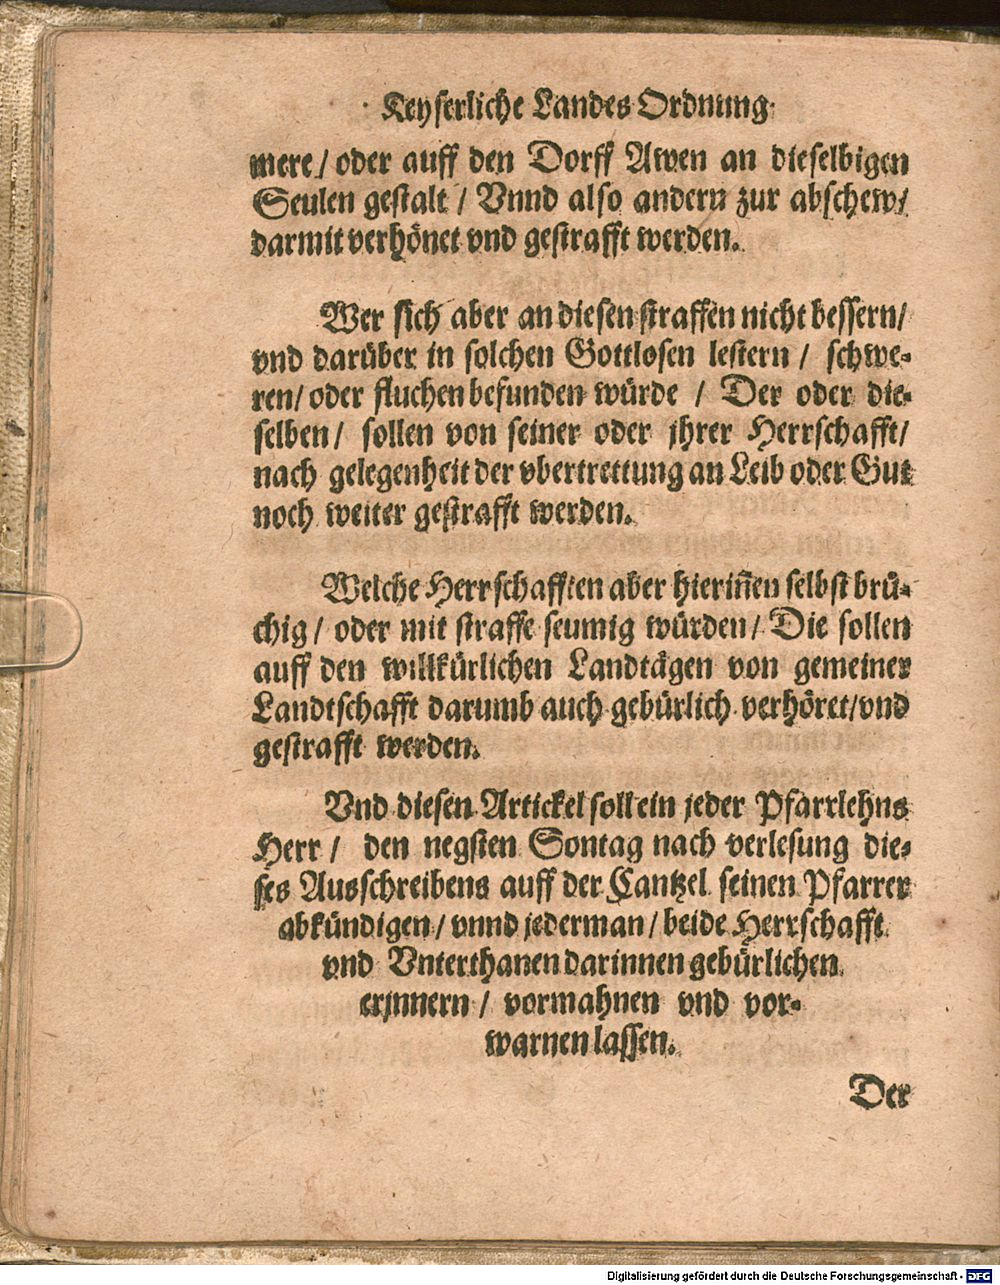 Keyserliche Landes Ordnung
were / oder auff den Dorff Awen an dieselbigen
Seulen gestalt / Vnnd also andern zur abschew /
darmit verhönet vnd gestrafft werden.
Wer sich aber an diesen straffen nicht bessern /
vnd darüber in solchen Gottlosen lestern / schwe-
ren / oder fluchen befunden würde / Der oder die-
selben / sollen von seiner oder jhrer Herrschafft /
nach gelegenheit der vbertrettung an Leib oder Gut
noch weiter gestrafft werden.
Welche Herrschafften aber hierin̄en selbst brü-
chig / oder mit straffe seumig würden / Die sollen
auff den willkürlichen Landtägen von gemeiner
Landtschafft darumb auch gebürlich verhöret / vnd
gestrafft werden.
Vnd diesen Artickel soll ein jeder Pfarrlehns
Herr / den negsten Sontag nach verlesung die-
ses Ausschreibens auff der Cantzel seinen Pfarrer
abkündigen / vnnd jederman / beide Herrschafft
vnd Vnterthanen darinnen gebürlichen
erjnnern / vormahnen vnd vor-
warnen lassen.
Der
Digitalisierung gefördert durch die Deutsche Forschungsgemeinschaft - DFG